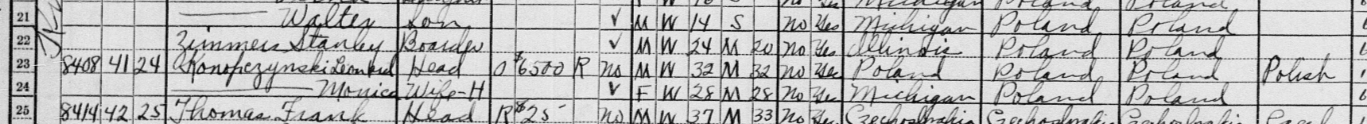 21 — Walter Son √ M W 14 S no Yes Michigan Poland Poland
22 Zimmers Stanley Boarder √ M W 24 M 20 No Yes Illinois Poland Poland
23 8408 41 24 Konopczynski Leonard Head O $6500 R no M W 32 M 32 No Yes Poland Poland Poland Polish
24 — Monica Wife-H √ F W 28 M 28 No Yes Michigan Poland Poland
25 8414 42 25 Thomas Frank Head R $25 no M W 37 M 33 No Yes